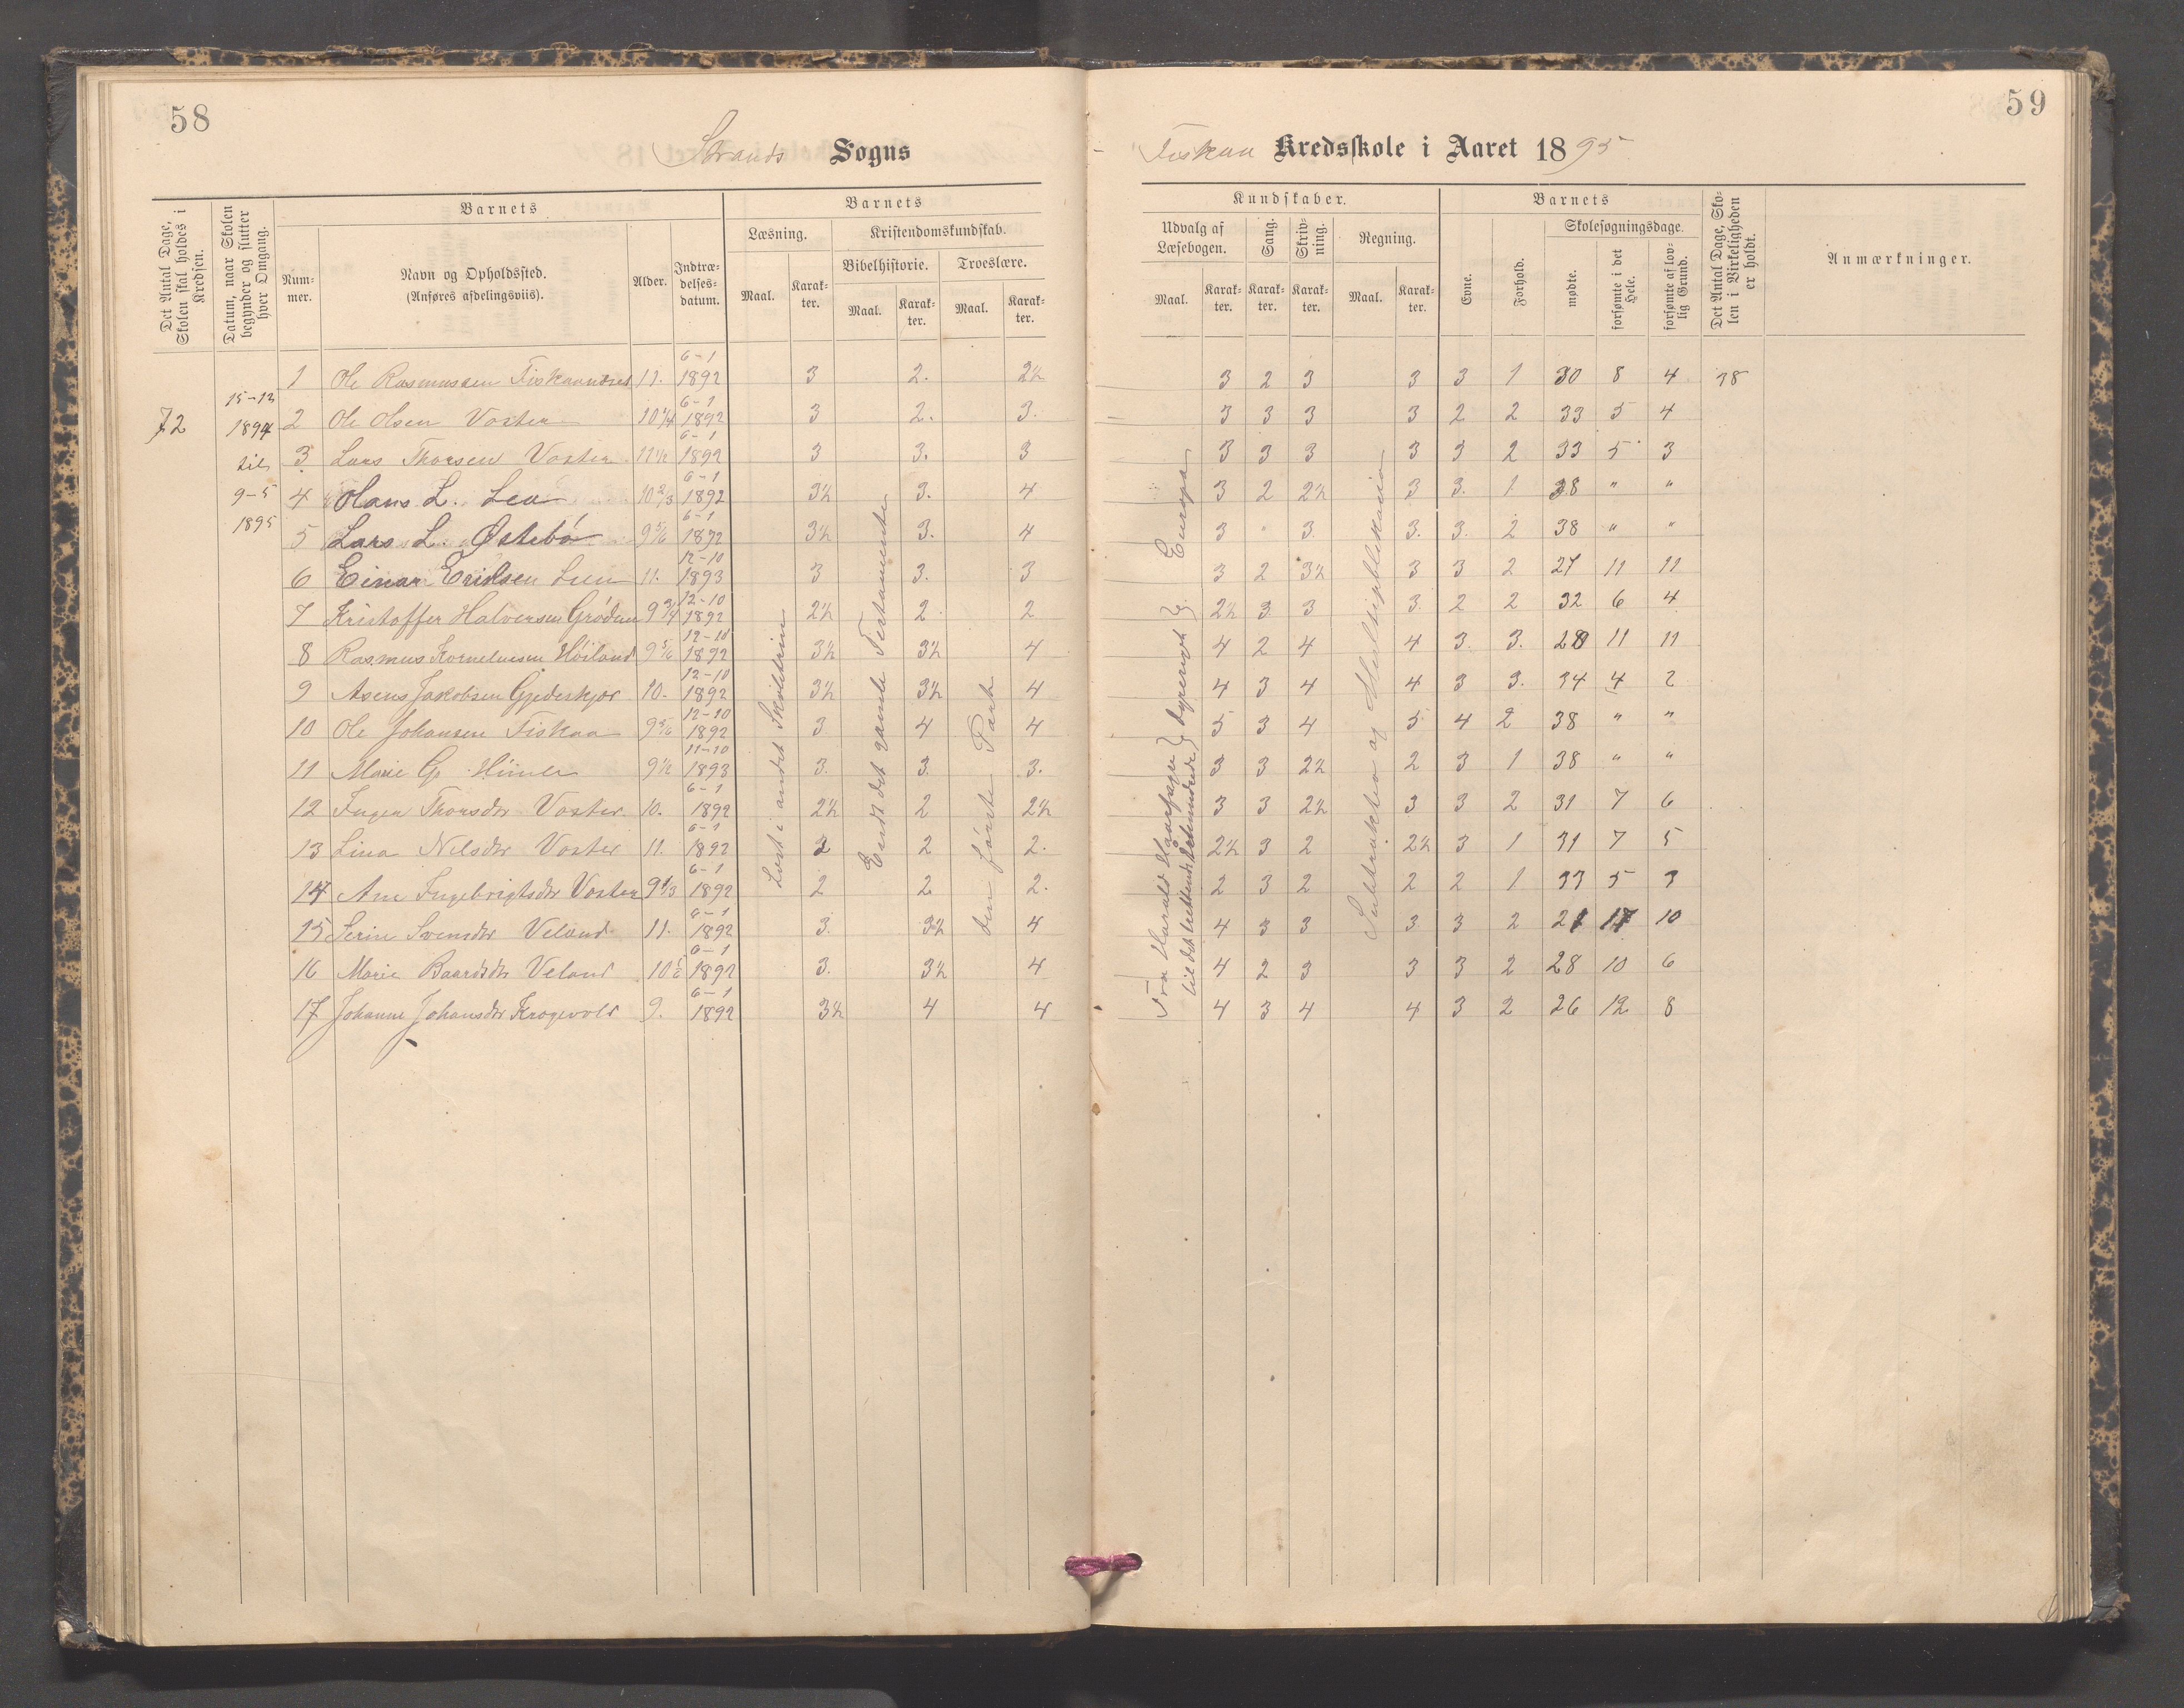 58
Strands Sogns
Det Antal Dage, Skolen skal holdes i Kredsen.
Datum, naar Skolen begynder og slutter hver Omgang.
Barnets
Num-mer.
Navn og Opholdssted.
(Anføres afdelingsviis).
Alder.
Indtræ-delses-datum.
Barnets
Læsning.
Maal.
Karak-ter.
Kristendomskundskab.
Bibelhistorie.
Maal.
Karak-ter.
Troeslære.
Maal.
Karak-ter.
72
15-12
1894
til
9-5
1895
1 Ole Rasmussen 11. 6-1 1892 3 2. 2½
2 Ole Olsen Voster 10¼ 6-1 1892 3 2. 3.
3 Lars Thorsen Voster 11½ 6-1 1892 3 3. 3
4 Hans L. Lea 10⅔ 6-1 1892 3½ 3. 4
5 Lars L. Østebø 9 5/6 6-1 1892 3½ 3. 4
6 Einar Eriksen 11. 12-10 1893 3 3. 3
7 Kristoffer Halversen Grødem 9¾ 12-10 1892 2½ 2. 2
8 Rasmus Kornelusen Høiland 9 5/6 12-10 1892 3½ 3½ 4
9 Asens Jakobsen 10. 12-10 1892 3½ 3½ 4
10 Ole Johansen Fiskaa 9 5/6 12-10 1892 3 4 4
11 Marie G. 9½ 11-10 1893 3. 3. 3.
12 Inger Thorsdtr Voster 10. 6-1 1892 2½ 2 2½
13 Lina Nilsdtr Voster 11. 6-1 1892 2 2 2.
14 Ane Ingebrigtsdtr Voster 9⅓ 6-1 1892 2 2 2.
15 Serine Svensdtr Veland 11. 6-1 1892 3. 3½ 4
16 Marie Baardsdtr Veland 10 6-1 1892 3. 3½ 4
17 Johanne Johansdtr Krogevold 9. 6-1 1892 3½ 4 4
Læst i andet Skoletrin
Endt det gamle Testamente
den første Part
59
Fiskaa Kredsskole i Aaret 1895
Kundskaber.
Udvalg af Læsebogen.
Maal.
Karak-ter.
Sang.
Karak-ter.
Skriv-ning.
Karak-ter.
Regning.
Maal.
Karak-ter.
Barnets
Evne.
Forhold.
Skolesøgningsdage.
mødte.
forsømte i det Hele.
forsømte af lov-lig Grund.
Det Antal Dage, Sko-len i Virkeligheden er holdt.
Anmærkninger.
3 2 3 3 3 1 30 8 4 38
3 3 3 3 2 2 33 5 4
3 3 3 3 3 2 33 5 3
3 2 2½ 3 3. 1 38 " "
3 " 3. 3. 3. 2 38 " "
3 2 3½ 3 3 2 27 11 11
2½ 3 3 3. 2 2 32 6 4
4 2 4 4 3. 3. 28 11 11
4 3 4 4 3 3. 34 4 2
5 3 4 5 4 2 38 " "
3 3 2½ 2 3 1 38 " "
3 3 2½ 3 3 2 31 7 6
2½ 3 2 2½ 3 1 31 7 5
2 3 2 2 2 1 33 5 3
4 3 3 3 3 2 21 17 10
4 2 3 3 3 2 28 10 6
4 3 4 4 3 2 26 12 8
Fra Harald Haarfager
til det attende Aarhundrede
} Dyreriget } Europa
Subtraktion og Multiplikasion